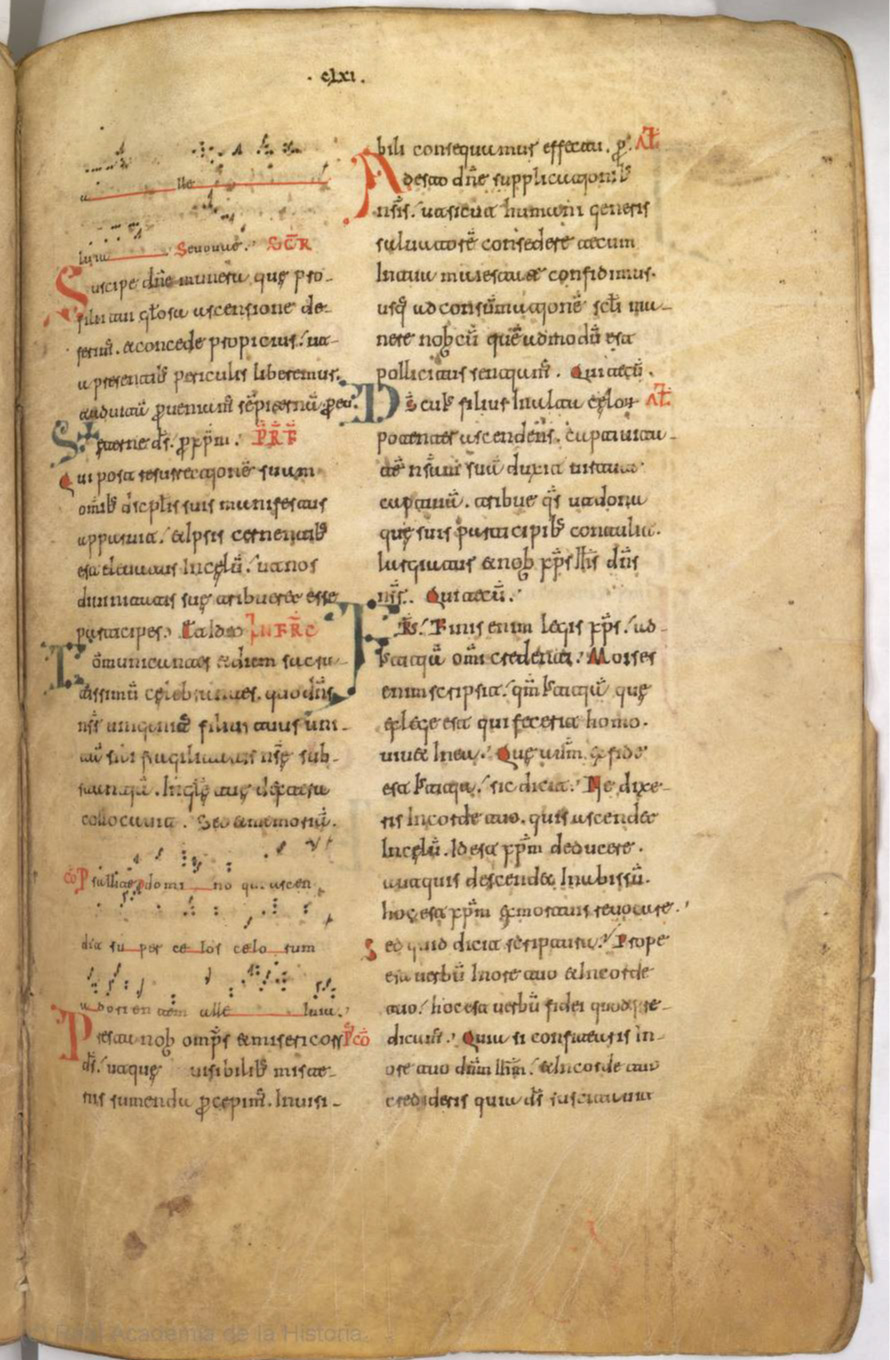 · clxi .
a lle
luia Seuouae. SECR
Suscipe dne munera que pro-
filii tui głosa ascensione de-
ferim̄. & concede propicius / ut
a presentib' periculis liberemur.
S
paterne ds. p xpm. PRF
Qui post resurrectionē suam
omib' disciplis suis manifestus
apparuit / & ipsis cernentib'
est eleuatus in celū / ut nos
diuinitatis sue tribueret esse
participes. Et ideo INFRC
Comunicantes & diem sacra-
tissimū celebrantes. quo dns
nr unigenit' filius tuus uni-
tā sibi fragilitatis nre sub-
stantiā. in gle tue dextera
collocauit. Sed & memoriā.
cō Psallite domi no qui ascen
dit su per ce los celo rum
ad orien tem alle luia.
Presta nob omps & misericors Pcō
ds. ut que uisibilib' miste-
riis sumenda pcepim̄. inuisi-
bili consequamur effectu. p. AŁ
Adesto dne supplicationib'
nris. ut sicut humani generis
saluatorē consedere tecum
in tua maiestate confidimus.
usq ad consūmationē scli ma-
nere nobcū quēadmodū est
pollicitus sentiam̄. Qui tecū.
Ds cui' filius in alta celoꝝ AŁ
potenter ascendens. captiuita-
tē nram sua duxit uirtute
captiuā. tribue qs ut dona
que suis participib' contulit.
largiatur & nob xps ihs dns
nr. Qui tecū.
FRS. Finis enim legis xps. ad
iustitiā omi credenti. Moises
enim scripsit. qm iustitiā que
ex lege est qui fecerit homo.
uiuet in ea. Que autm ex fide
est iustitia / sic dicit. Ne dixe-
ris in corde tuo. quis ascendet
in celū. id est xpm deducere.
aut quis descendet in abissū.
hoc est xpm ex mortuis reuocare.
Sed quid dicit scriptura? Prope
est uerbū in ore tuo & in corde
tuo / hoc est uerbū fidei quod pre-
dicam̄. Quia si confitearis in
ore tuo dnm ihm / & in corde tuo
credideris quia ds suscitauit
Real Academia de la Historia.